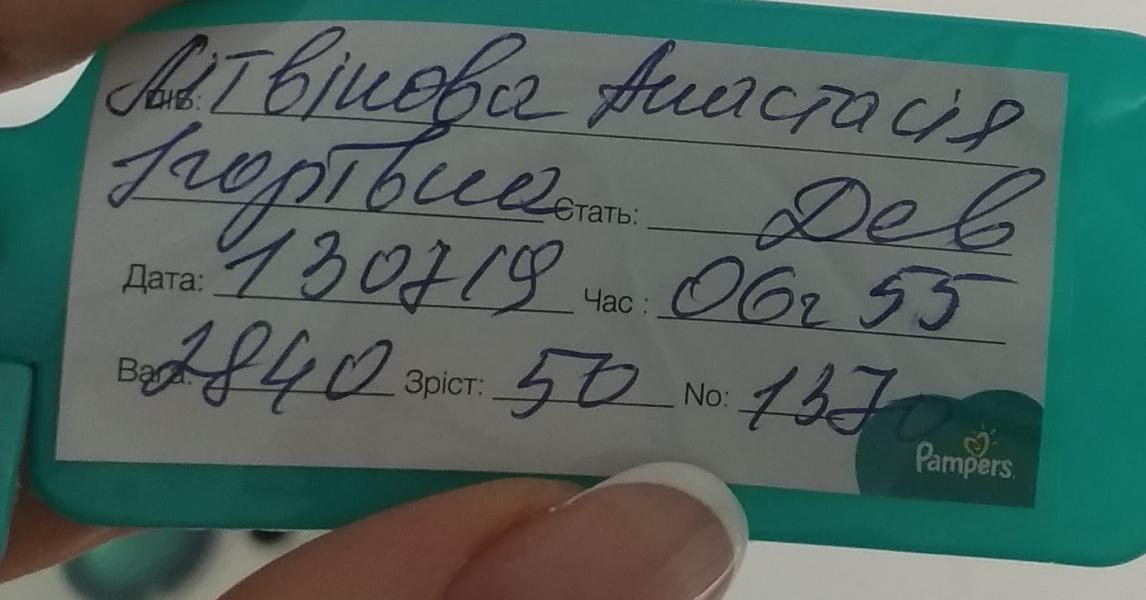 Літвінова Анастасія
Ігорівна Стать: Дев
Дата: 130719 Час: 06г 55
Вага: 2840 Зріст: 50 No: 1370
Pampers